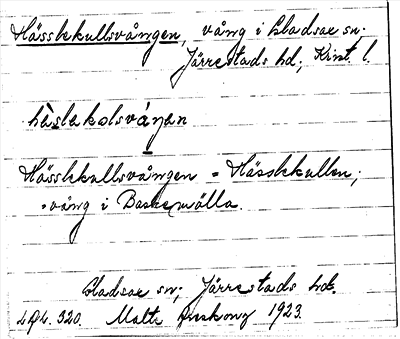 Hässlekullsvången, vång i Gladsax sn;
Järrestads hd; Krist. l.
hàslekolsváŋan
Hässlekullsvången = Hässlekullen;
vång i Baskemölla.
Gladsax sn; Järrestads hd.
320. Malte 1923.